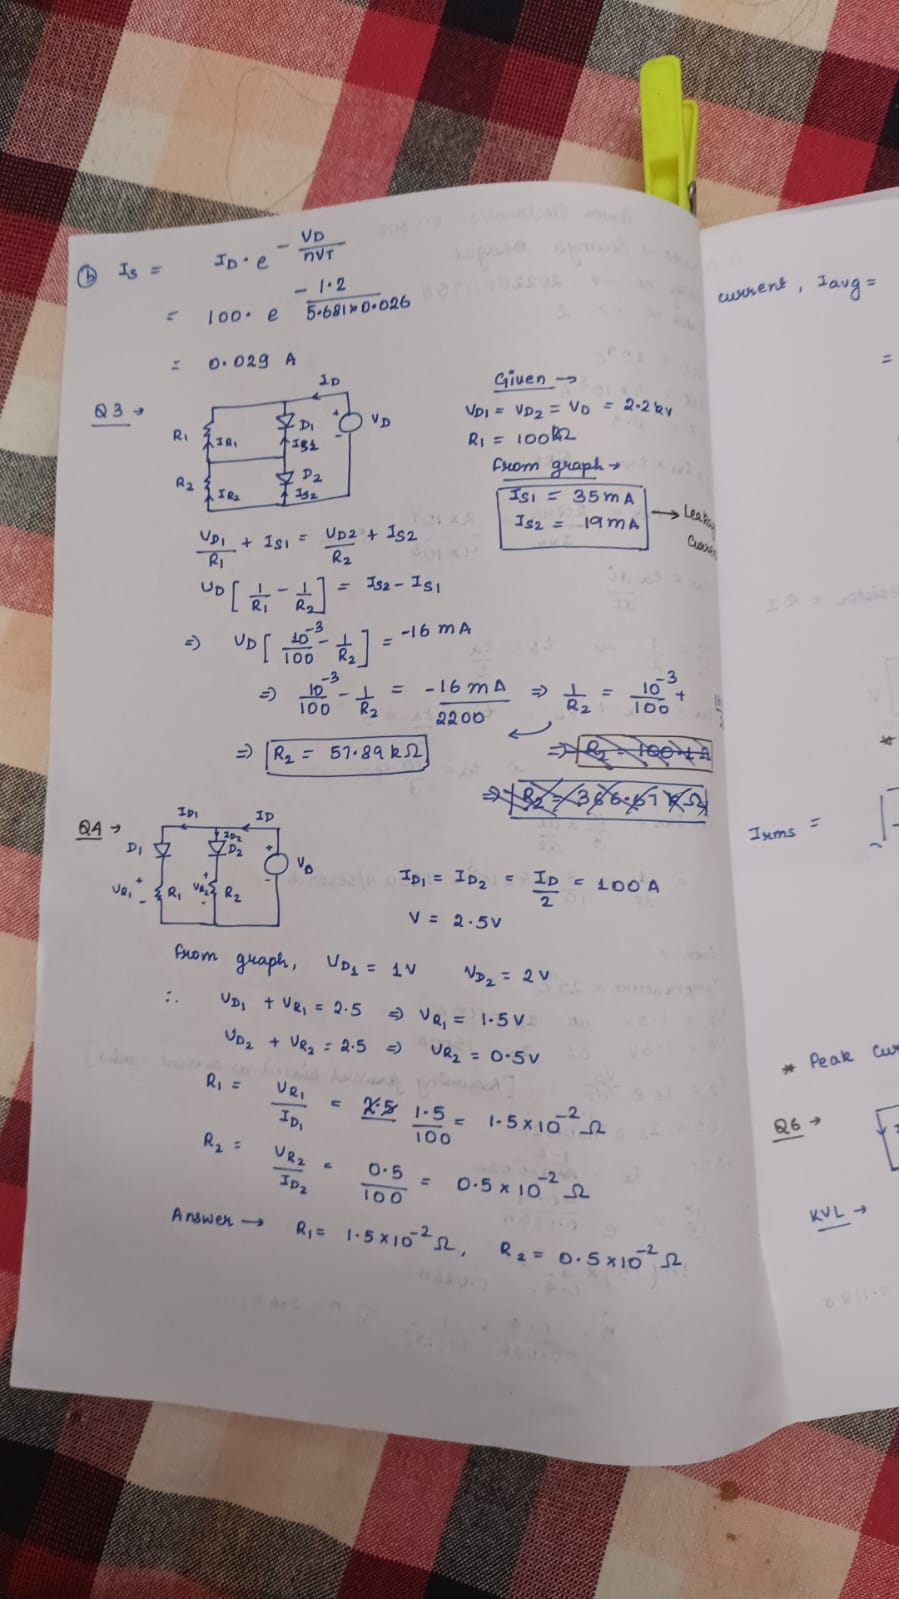 (b) IS = ID · e^(-VD/nVT)
= 100 · e^(-1.2/5.681×0.026)
= 0.029 A
Q3 →
ID
R1 IR1 D1 IS1 + - VD
R2 IR2 D2 IS2
Given →
VD1 = VD2 = VD = 2.2kV
R1 = 100kΩ
From graph →
IS1 = 35mA
IS2 = 19mA → Leak
Curren
VD1/R1 + IS1 = VD2/R2 + IS2
VD [1/R1 - 1/R2] = IS2 - IS1
⇒ VD [10^-3/100 - 1/R2] = -16 mA
⇒ 10^-3/100 - 1/R2 = -16mA/2200 ⇒ 1/R2 = 10^-3/100 +
⇒ R2 = 57.89kΩ
Q4 →
ID1 ID
D1 ID2 D2 + - VD
VR1 + - R1 VR2 + - R2
ID1 = ID2 = ID/2 = 100A
V = 2.5V
From graph, VD1 = 1V VD2 = 2V
∴ VD1 + VR1 = 2.5 ⇒ VR1 = 1.5V
VD2 + VR2 = 2.5 ⇒ VR2 = 0.5V
R1 = VR1/ID1 = 1.5/100 = 1.5×10^-2 Ω
R2 = VR2/ID2 = 0.5/100 = 0.5×10^-2 Ω
Answer → R1 = 1.5×10^-2 Ω, R2 = 0.5×10^-2 Ω
current, Iavg =
=
*
Irms =
* Peak Cur
Q6 →
KVL →